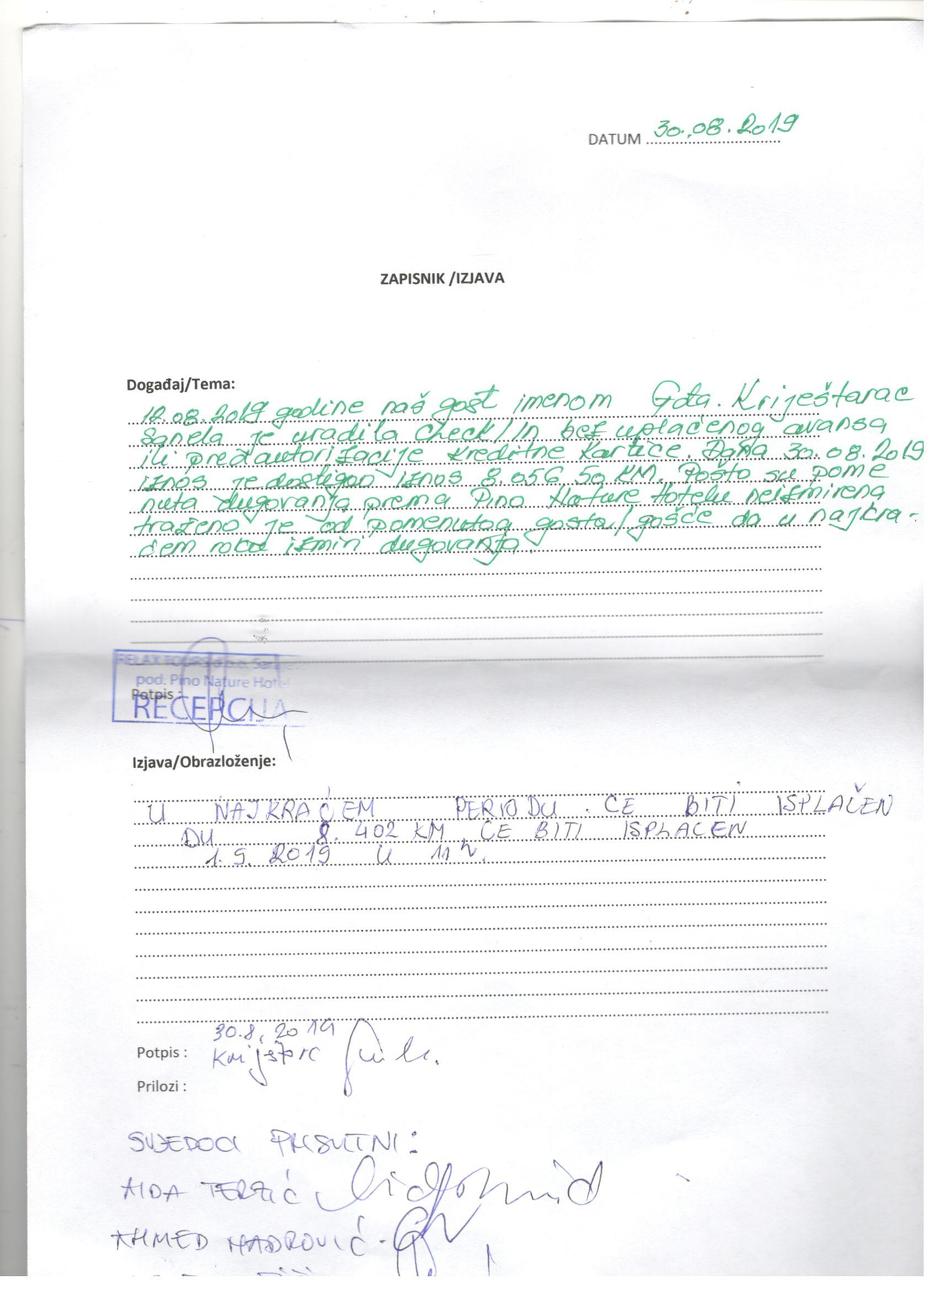 DATUM 30.08.2019
ZAPISNIK /IZJAVA
Događaj/Tema:
12.08.2019 godine naš gost imenom Gđa. Kriještarac
Sanela je uradila check/in bez uplaćenog avansa
ili predautorizacije kreditne kartice. Dana 30.08.2019
iznos je dostigao iznos 8.056,50 KM. Pošto su pome
nuta dugovanja prema Pino Nature Hotelu neizmirena
traženo je od pomenutog gosta/gošće da u najkra-
ćem roku izmiri dugovanja.
RELAX TOURS d.o.o. Sarajevo
pod. Pino Nature Hotel
Potpis :
RECEPCIJA
Izjava/Obrazloženje:
U NAJKRAĆEM PERIODU ĆE BITI ISPLAČEN
DU 8.402 KM ĆE BITI ISPLACEN
1.9. 2019 U 11 h.
30.8. 2019
Potpis :
Prilozi :
SVJEDOCI PRISUTNI:
AIDA TERZIĆ
AHMED MADROVIĆ -